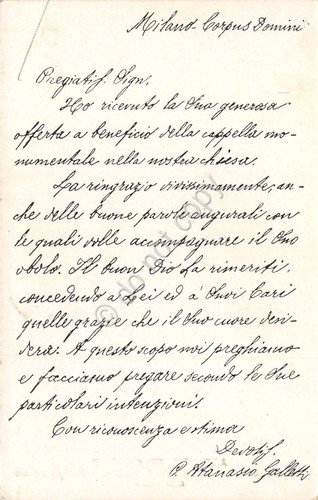 Milano - Corpus Domini
Pregiatis. Sign.
Ho ricevuto la Sua generosa
offerta a beneficio della cappella mo-
numentale nella nostra chiesa.
La ringrazio vivissimamente, an-
che delle buone parole augurali con
le quali volle accompagnare il Suo
obolo. Il buon Dio La rimeriti,
concedendo a Lei ed à Suoi Cari
quelle grazie che il Suo cuore desi-
dera. A questo scopo noi preghiamo
e facciamo pregare secondo le Sue
particolari intenzioni.
Con riconoscenza e stima
Devotis.
P. Atanasio Galletti
© do not copy